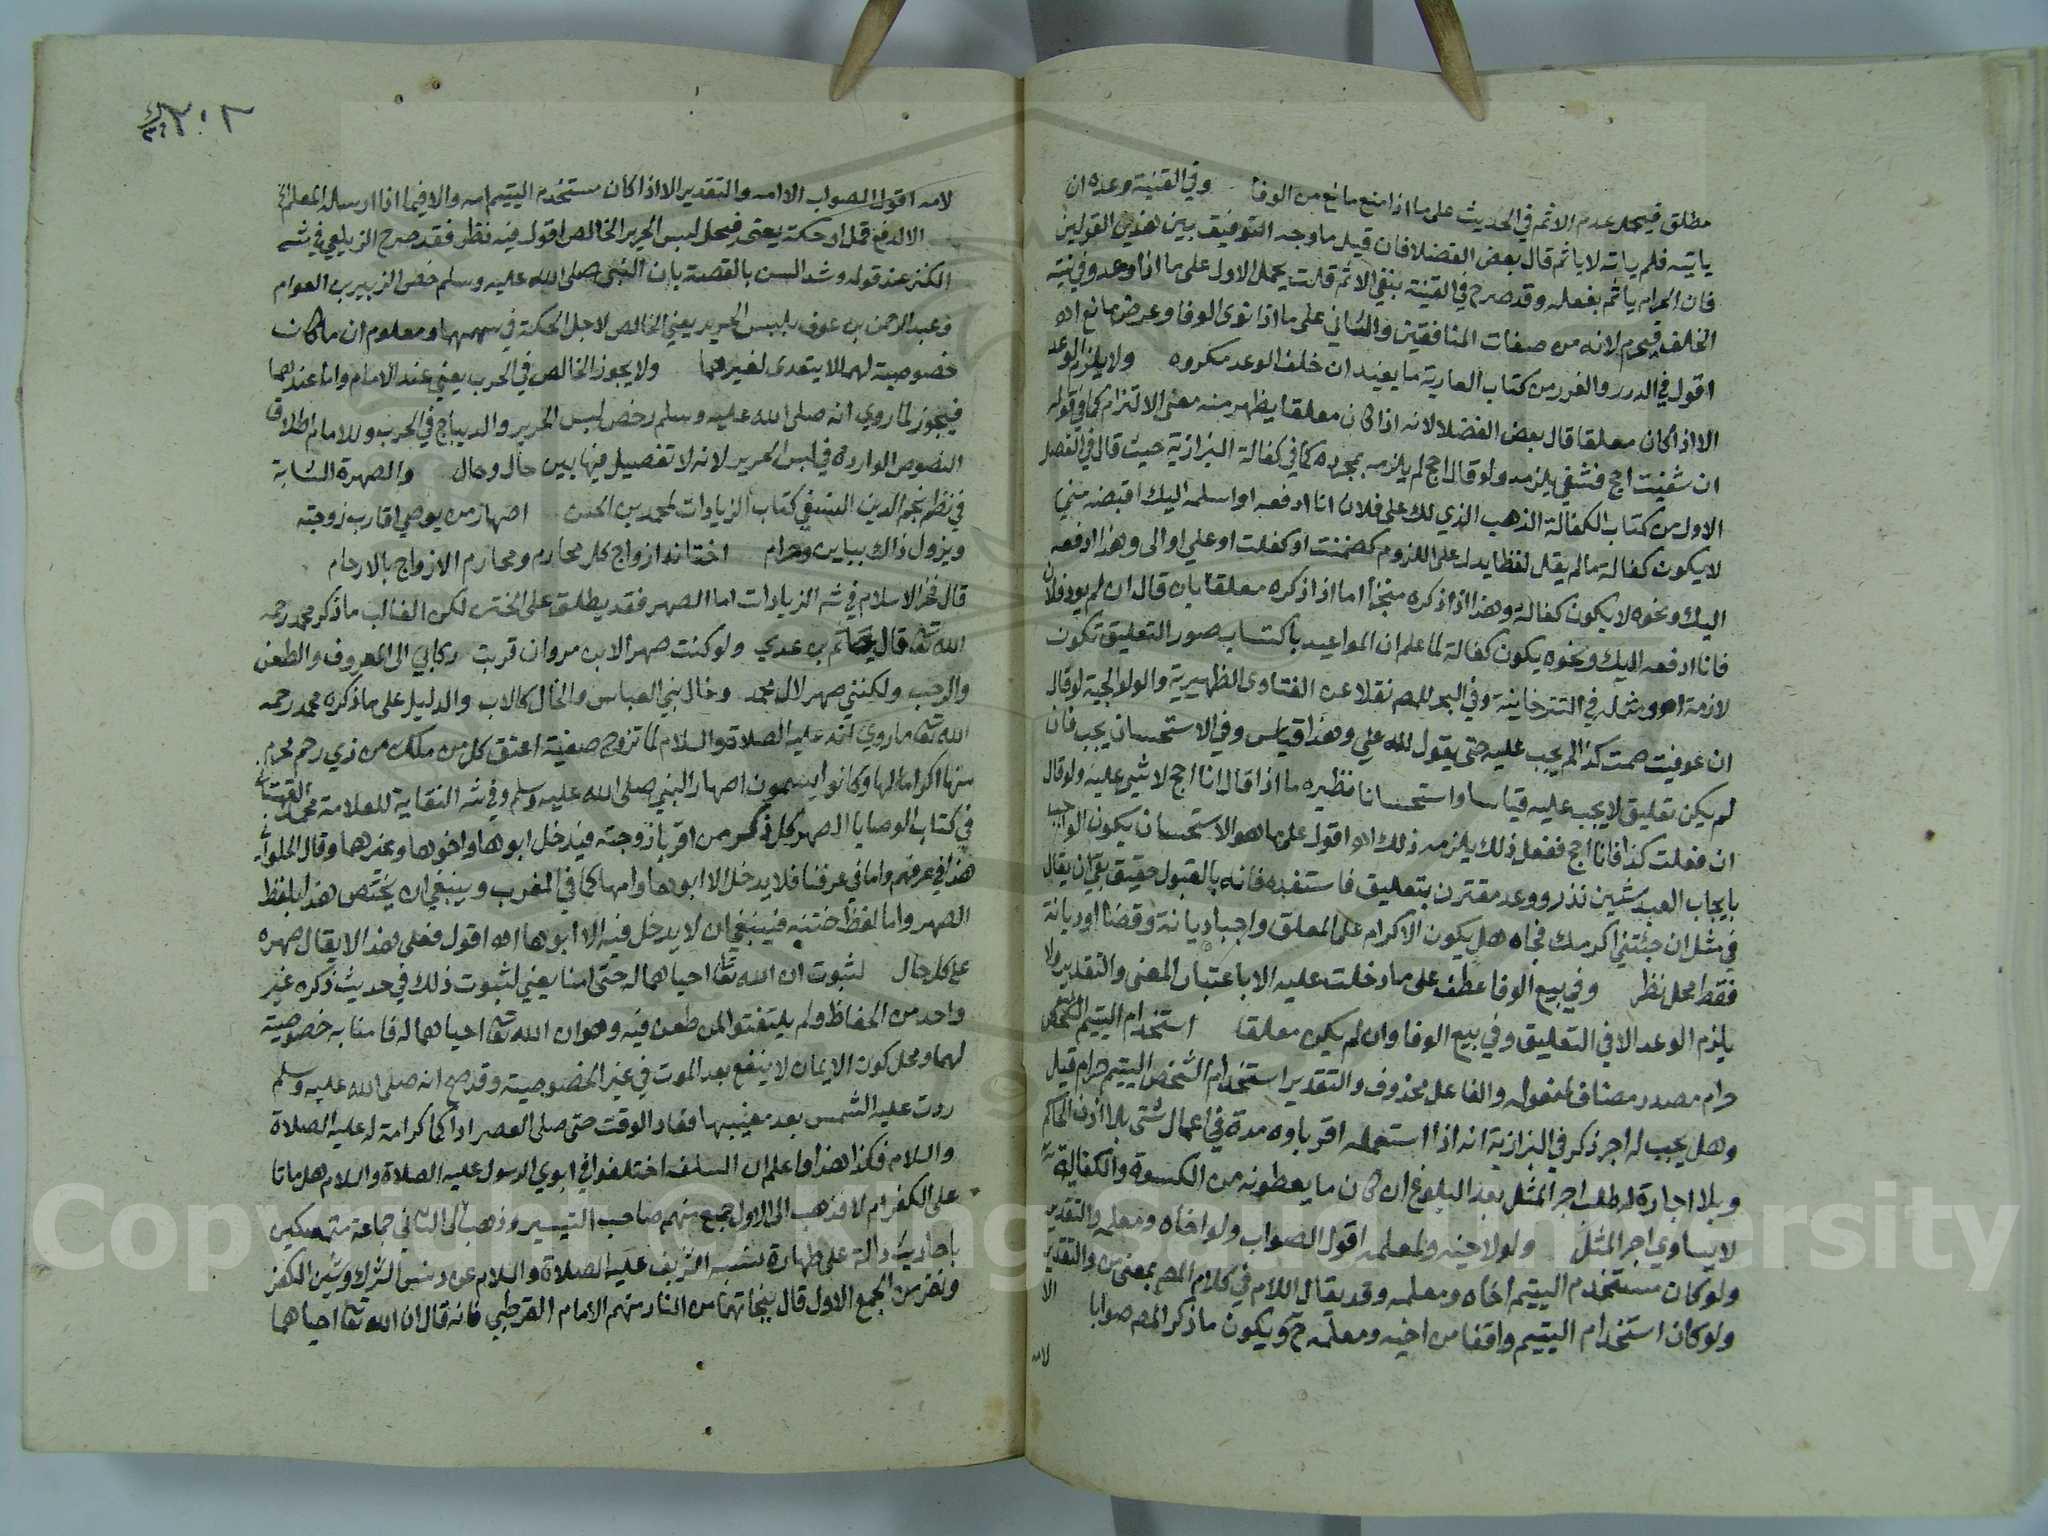 مطلق فيحمل عدم الاثم في الحديث على ما اذا منع مانع من الوفا وفي القنية وعده ان
ياتيه فلم ياته لا ياثم قال بعض الفضلا فان قيل ما وجه التوفيق بين هذين القولين
فان الحرام ياثم بفعله وقد صرح في القنية بنفي الاثم قلت يحمل الاول على ما اذا وعد وفي نيته
الخلف فيحرم لانه من صفات المنافقين والثاني على ما اذا نوى الوفا وعرض مانع اه
اقول في الدرر والغرر من كتاب العارية ما يفيد ان خلف الوعد مكروه ولا يلزم الوعد
الا اذا كان معلقا قال بعض الفضلا لانه اذا كان معلقا يظهر منه معنى الالتزام كما في قوله
ان شفيت احج فشفي يلزمه ولو قال احج لم يلزمه بمجرده كما في كفالة البزازية حيث قال في الفصل
الاول من كتاب الكفالة الذهب الذي لك على فلان انا ادفعه او اسلمه اليك اقبضه مني
لا يكون كفالة ما لم يقل لفظا يدل على اللزوم كضمنت او كفلت او علي او الي وهذا ادفعه
اليك ونحوه لا يكون كفالة وهذا اذا ذكره منجزا اما اذا ذكره معلقا بان قال ان لم يود فلان
فانا ادفعه اليك ونحوه يكون كفالة لما علم ان المواعيد باكتساب صور التعليق تكون
لازمة اه ومثله في التترخانية وفي البحر للمص نقلا عن الفتاوى الظهيرية والولوالجية لو قال
ان عوفيت صمت كذا لم يجب عليه حتى يقول لله علي وهذا قياس وفي الاستحسان يجب فان
لم يكن تعليق لا يجب عليه قياسا واستحسانا نظيره ما اذا قال انا احج لا شي عليه ولو قال
ان فعلت كذا فانا احج ففعل ذلك يلزمه ذلك اه اقول على ما هو الاستحسان يكون الواجب
بايجاب العبد شيئين نذر ووعد مقترن بتعليق فاستفده فانه بالقبول حقيق بقي ان يقال
في مثل ان جئتني اكرمك فجاه هل يكون الاكرام على المعلق واجبا ديانة وقضا او ديانة
فقط محل نظر وفي بيع الوفا عطف على ما دخلت عليه الا باعتبار المعنى والتقدير ولا
يلزم الوعد الا في التعليق وفي بيع الوفا وان لم يكن معلقا استخدام اليتيم
حرام مصدر مضاف لمفعوله والفاعل محذوف والتقدير استخدام الشخص اليتيم حرام قيل
وهل يجب له اجر ذكر في البزازية انه اذا استعمله اقرباوه مدة في اعمال شتى بلا اذن الحاكم
وبلا اجارة له طلب اجر المثل بعد البلوغ ان كان ما يعطونه من الكسوة والكفاية
لا يساوي اجر المثل ولو لاخيه ولمعلمه اقول الصواب ولو اخاه ومعلمه والتقدير
ولو كان مستخدم اليتيم اخاه ومعلمه وقد يقال اللام في كلام المص بمعنى من والتقدير
ولو كان استخدام اليتيم واقعا من اخيه ومعلمه ح ويكون ما ذكر المص صوابا الا
لامه
٢٠٢
لامه اقول الصواب الا امه والتقدير الا اذا كان مستخدم اليتيم امه والا فيما اذا ارسله المعلم
الا لدفع قمل او حكة يعتمد فيحل لبس الحرير الخالص اقول فيه نظر فقد صرح الزيلعي في شه
الكنز عند قوله وشد السن بالفضة بان النبي صلى الله عليه وسلم خص الزبير بن العوام
وعبد الرحمن بن عوف بلبس الحرير يعني الخالص لاجل الحكة في جسمهما ومعلوم ان ما كان
خصوصية لهما لا يتعدى لغيرهما ولا يجوز الخالص في الحرب يعني عند الامام واما عندهما
فيجوز لما روي انه صلى الله عليه وسلم رخص لبس الحرير والديباج في الحرب وللامام اطلاق
النصوص الواردة في لبس الحرير لانه لا تفصيل فيها بين حال وحال والصهرة الشابة
في نظم نجم الدين النسفي كتاب الزيادات لمحمد بن الحسن اصهار من يوصي اقارب زوجته
ويزول ذاك بباين وحرام اختانه ازواج كل محارم ومحارم الازواج بالارحام
قال فخر الاسلام في شه الزيادات اما الصهر فقد يطلق على الختن لكن الغالب ما ذكر محمد رحمه
الله تعالى قال حاتم بن عدي ولو كنت صهرا لابن مروان قربت ركابي الى المعروف والطعن
والرحب ولكنني صهر لال محمد وخال بني العباس والخال كالاب والدليل على ما ذكره محمد رحمه
الله تعالى ما روي انه عليه الصلاة والسلام لما تزوج صفية اعتق كل من ملك من ذي رحم محرم
منها اكراما لها وكانوا يسمون اصهار النبي صلى الله عليه وسلم وفي شه النقاية للعلامة محمد القهستاني
في كتاب الوصايا الصهر كل ذكر من اقربا زوجته فيدخل ابوها واخوها وغيرهما وقال الحلواني
هذا في عرفهم واما في عرفنا فلا يدخل الا ابوها وامها كما في المغرب وينبغي ان يختص هذا بلفظ
الصهر واما لفظ ختنه فينبغي ان لا يدخل فيه الا ابوها اه اقول فعلى هذا لا يقال صهره
على كل حال لثبوت ان الله تعالى احياهما له حتى امنا يعني لثبوت ذلك في حديث ذكره غير
واحد من الحفاظ ولم يلتفتوا لمن طعن فيه وهو ان الله تعالى احياهما له فامنا به خصوصية
لهما ومحل كون الايمان لا ينفع بعد الموت في غير الخصوصية وقد صح انه صلى الله عليه وسلم
ردت عليه الشمس بعد مغيبها فعاد الوقت حتى صلى العصر اداء كما كرامة له عليه الصلاة
والسلام فكذا هذا واعلم ان السلف اختلفوا في ابوي الرسول عليه الصلاة والسلام هل ماتا
على الكفر ام لا فذهب الى الاول جمع منهم صاحب التيسير وذهب الى الثاني جماعة متمسكين
باحاديث دالة على طهارة نسبه الشريف عليه الصلاة والسلام عن دنس الشرك وشين الكفر
ونفر من الجمع الاول قال بنجاتهما من النار منهم الامام القرطبي فانه قال ان الله تعالى احياهما
Copyright © King Saud University